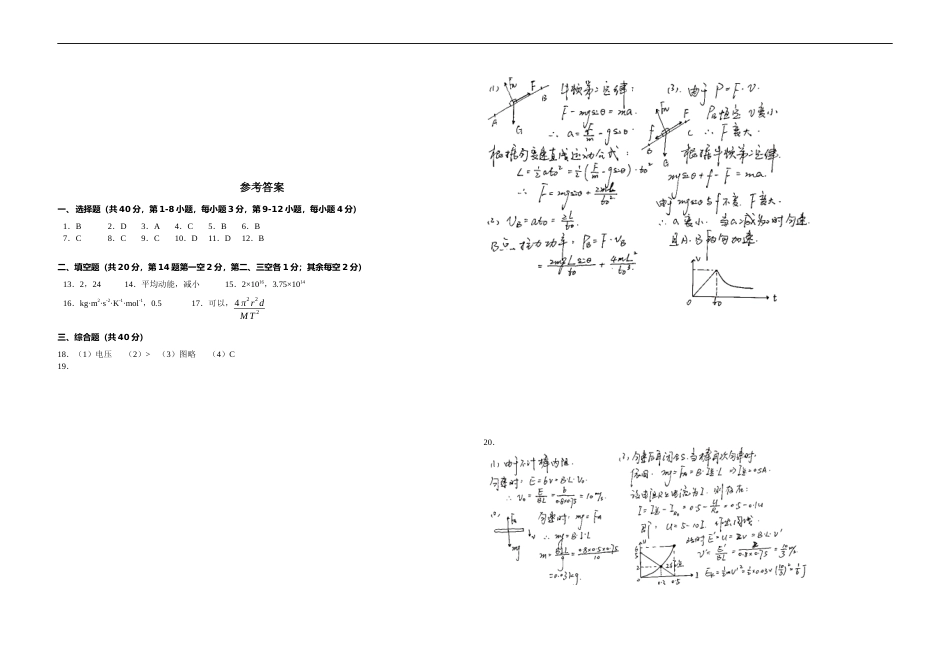 参考答案
一、选择题（共40分，第1-8小题，每小题3分，第9-12小题，每小题4分）
1．B 2．D 3．A 4．C 5．B 6．B
7．C 8．C 9．C 10．D 11．D 12．B
二、填空题（共20分，第14题第一空2分，第二、三空各1分；其余每空2分）
13．2，24 14．平均动能，减小 15．2×10¹⁶，3.75×10¹⁴
16．kg·m²·s⁻²·K⁻¹·mol⁻¹，0.5 17．可以，4π²r²d/MT²
三、综合题（共40分）
18．（1）电压 （2）> （3）图略 （4）C
19.
(1) 牛顿第二定律：
F - mgsinθ = ma.
∴ a = F/m - gsinθ.
根据匀变速直线运动公式：
L = ½at₀² = ½(F/m - gsinθ)·t₀²
∴ F = mgsinθ + 2mL/t₀²
(2) V_B = at₀ = 2L/t₀.
B点 拉力功率，P_B = F·V_B
= 2mgLsinθ/t₀ + 4mL²/t₀³.
(3). 由于 P = F·V.
P_B恒定 V变小
∴ F变大.
根据牛顿第二定律.
mgsinθ + f - F = ma.
由于mgsinθ与f不变, F变大.
∴ a变小. 当a减为0时匀速.
且A.B间匀加速.
V
t₀
t
20.
(1) 由于不计棒内阻.
匀速时，E = 6V = B·L·V₀.
∴ V₀ = E/BL = 6/0.8×0.75 = 10m/s.
(2). 匀速时，mg = F_A
∴ mg = B·I·L
m = BIL/g = 0.8×0.5×0.75/10
= 0.03kg.
(3) 匀速后再闭合S. 当棒再次匀速时.
mg = F_A = B·I·L
I = 0.5 - U/R₀ = 0.5 - 0.1U
即，U = 5 - 10I. 作出图线.
此时E' = U = 2V = B·L·V'
V' = E'/BL = 2/0.8×0.75 = 10/3 m/s.
E_k = ½mV'² = ½×0.03×(10/3)² = 1/6 J